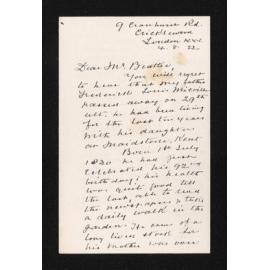 9 Cranhurst Rd.
Cricklewood
London N.W.
4. 8. 22.
Dear Mr Beattie,
You will regret
to hear that my father
Frederick Louis
passed away on 29th
ult. he had been living
for the last ten years
with his daughter
Maidstone, Kent
Born 1st July
1830 he had just
celebrated his 92nd
birthday; his health
was quite good till
the last, able to read
the newspapers & take
a daily walk in the
garden. He came of a
long lived stock for
his Mother was over